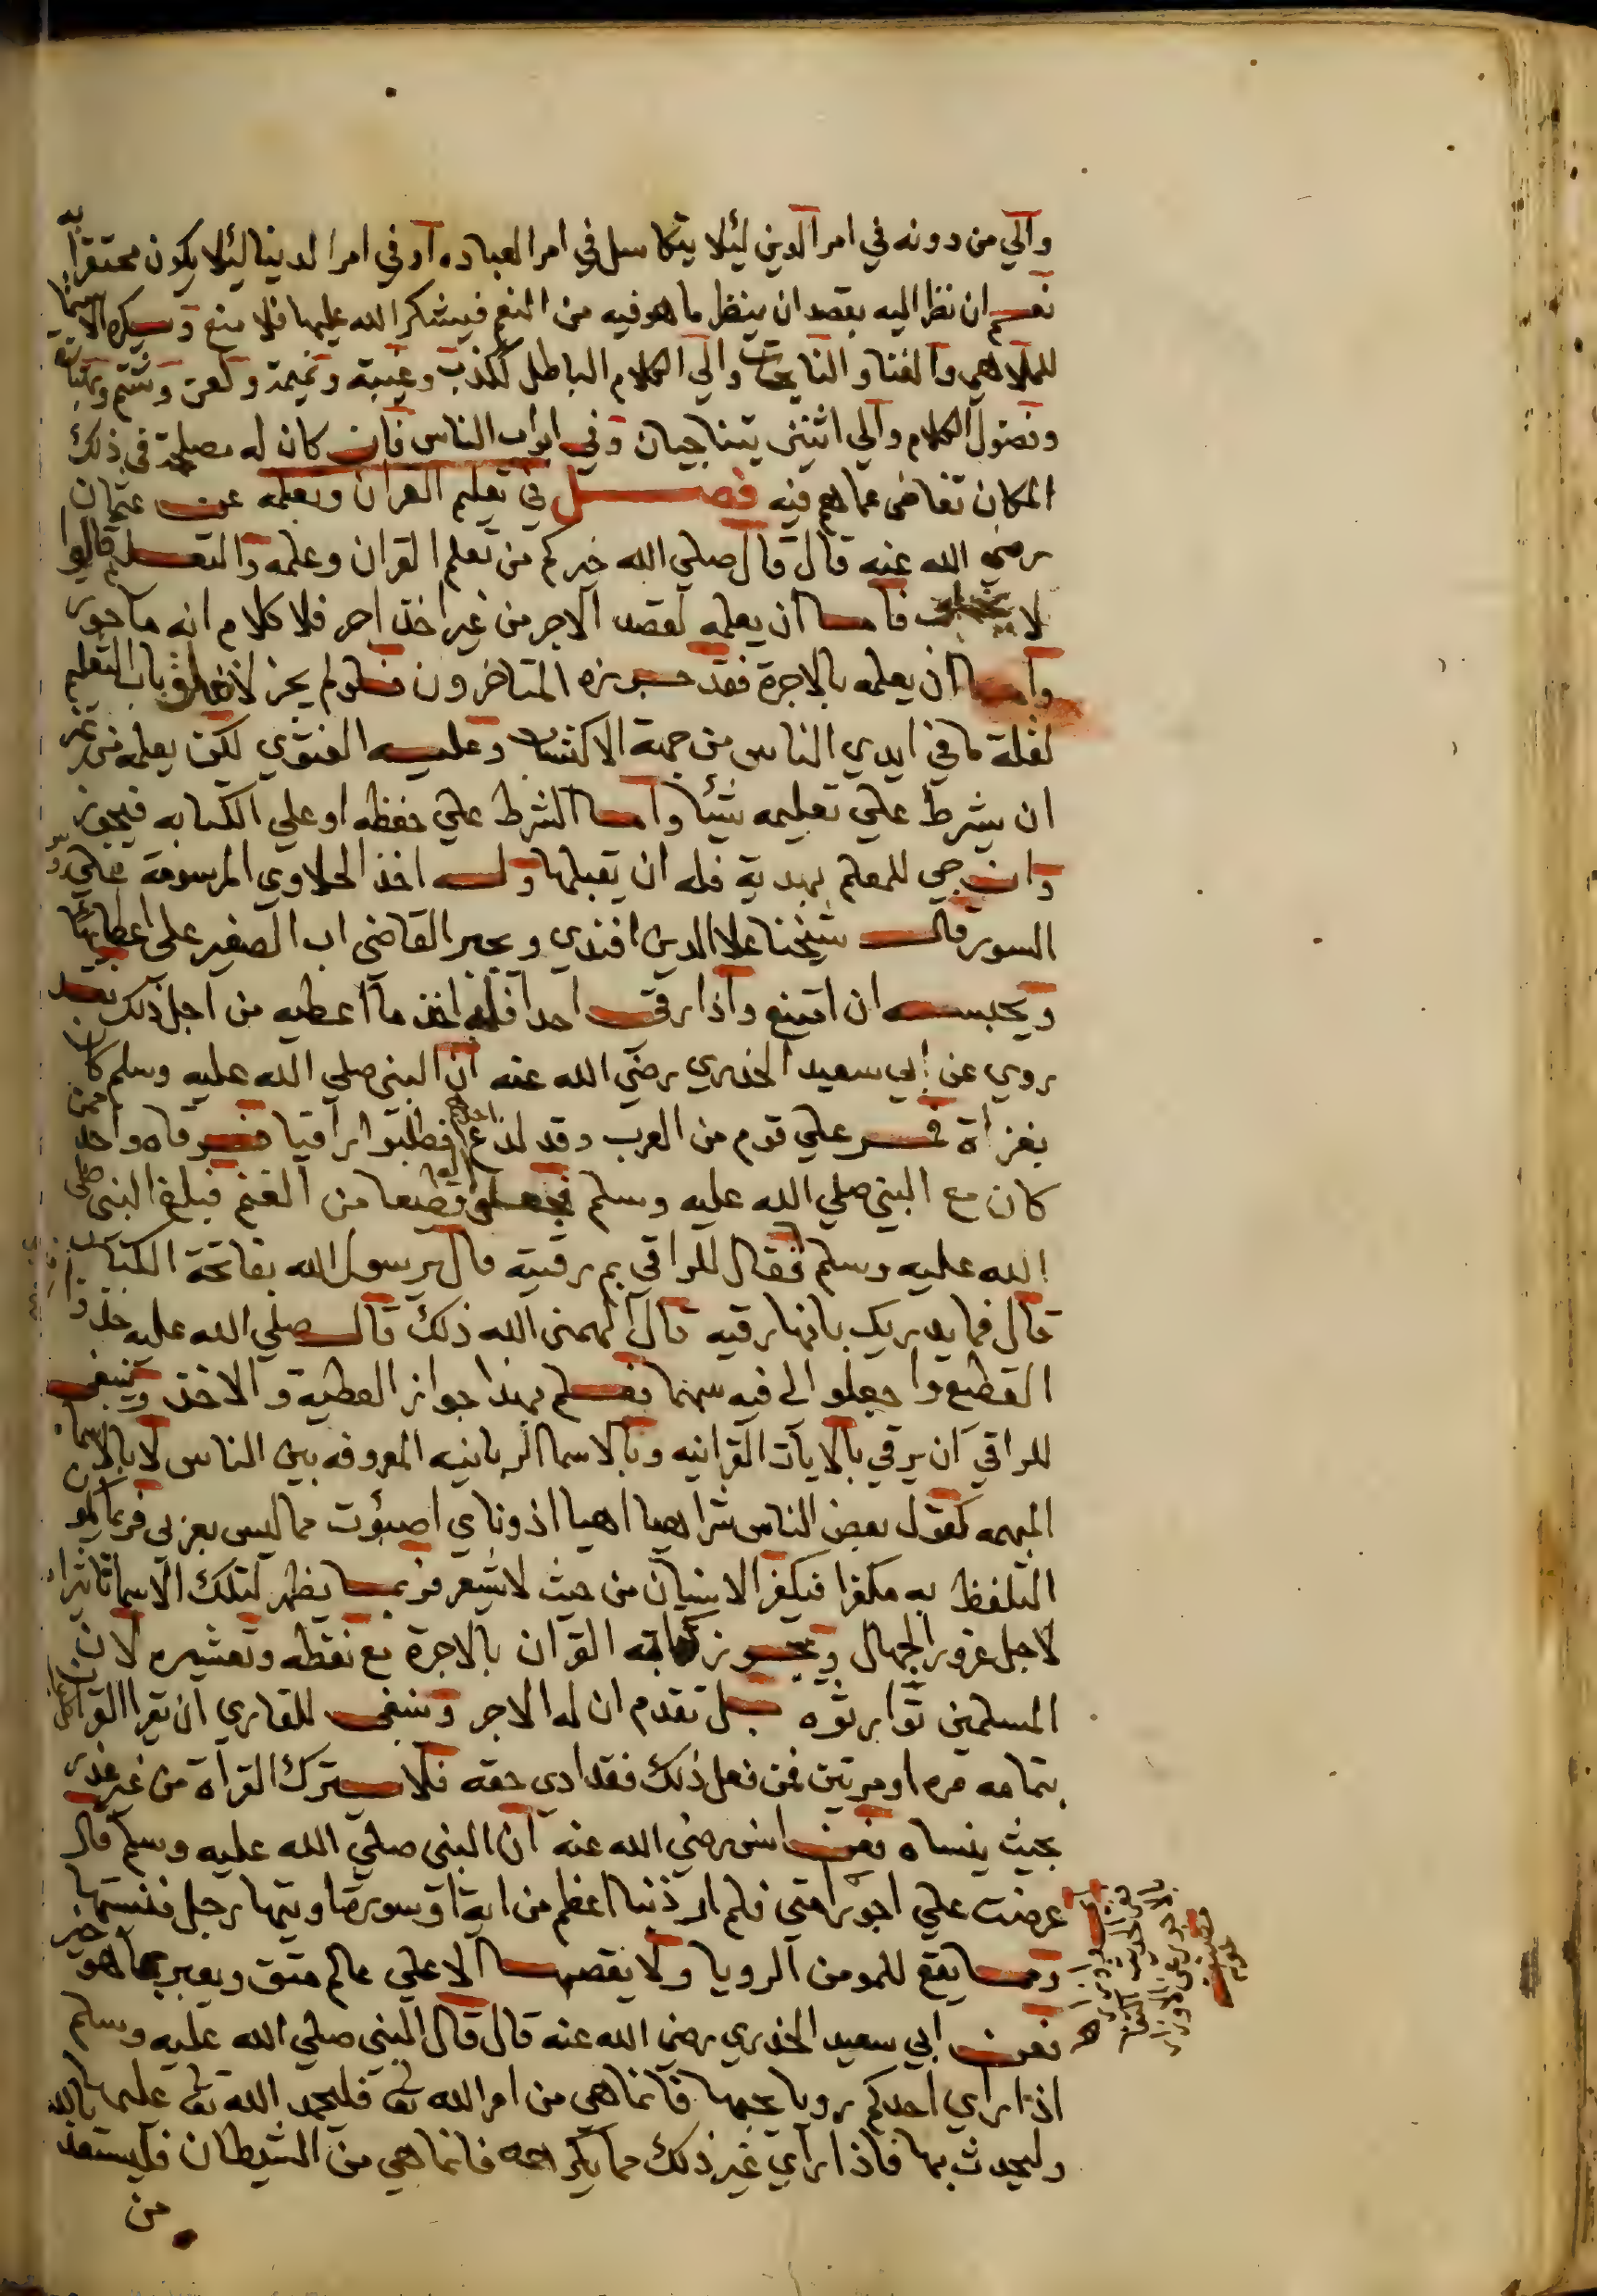 والي من دونه في امر الدين ليلا يتكاسل في امر العباده او في امر الدنيا ليلا يكون محتقرا به
نعم ان نظر اليه بقصد ان ينظر ما هو فيه من النعم فيشكر الله عليها فلا منع ويكره الاستماع
للملاهي والغنا والنايحات والي الكلام الباطل ككذب وغيبة ونميمة ولعن وشتم
وفضول الكلام والي اثنين يتناجيان وفي ابواب الناس فان كان له مصلحة في ذلك
المكان تغاضى عما هم فيه فصل في تعليم القران وتعلمه عن عثمان
رضي الله عنه قال قال صلي الله خيركم من تعلم القران وعلمه والتعليم قالوا
لا فاما ان يعلمه لقصد الاجر من غير اخذ اجر فلا كلام انه ماجور
واما ان يعلمه بالاجرة فقد جوزه المتاخرون فلو لم يجز لانغلق باب التعليم
لقلة ما في ايدي الناس من جهة الاكتساب وعليه الفتوي لكن يعلمه من غير
ان يشرط علي تعليمه شيئا واما الشرط علي حفظه او علي الكتابه فيجوز
وان جي للمعلم بهدية فله ان يقبلها وله اخذ الحلاوي المرسومة علي
السور قال شيخنا علا الدين افندي ويجبر القاضي اب الصغير على اعطائها
ويحبسه ان امتنع واذا رقي احدا فله اخذ ما اعطيه من اجل ذلك فقد
روي عن ابي سعيد الخدري رضي الله عنه ان النبي صلي الله عليه وسلم كان
بغزاة فمر علي قوم من العرب وقد لدغ احدهم فطلبوا راقيا فرقاه واحد ممن
كان مع النبي صلي الله عليه وسلم فجعلو له قطيعا من الغنم فبلغ النبي صلي
الله عليه وسلم فقال للراقي بم رقيته قال يرسول الله بفاتحة الكتاب
قال فما يدريك بانها رقيه قال الهمني الله ذلك قال صلي الله عليه خذوا
القطيع واجعلوا لي فيه سهما فعلم بهذا جواز العطية والاخذ وينبغي
للراقي ان يرقي بالايات القرانيه وبالاسما الربانيه المعروفه بين الناس لا بالاسما
المبهمه كقول بعض الناس شراهيا اهيا اذوناي اصبؤت مما ليس بعربي فربما يكون
التلفظ به مكفرا فيكفر الانسان من حيث لا يشعر فربما يظهر لتلك الاسما تاثيرا
لاجل غرور الجهال ويجوز كتابه القران بالاجرة مع نقطه وتعشيره لان
المسلمين توارثوه بل تقدم ان له الاجر وينبغي للقاري ان يقرا القران
بتمامه مره او مرتين فمن فعل ذلك فقد ادي حقه فلا يترك القرآة من غير عذر
بحيث ينساه فعن انس رضي الله عنه ان النبي صلي الله عليه وسلم قال
عرضت علي اجور امتي فلم ار ذنبا اعظم من اية او سورة اوتيها رجل فنسيها
ومما يقع للمومن الرويا ولا يقصها الا علي عالم متق ويعبر بما هو خير
فعن ابي سعيد الخدري رضي الله عنه قال قال النبي صلي الله عليه وسلم
اذا راي احدكم رويا يحبها فانما هي من امر الله تع فليحمد الله تع عليها
وليحدث بها فاذا راي غير ذلك مما يكرهه فانما هي من الشيطان فليستعذ بالله
من